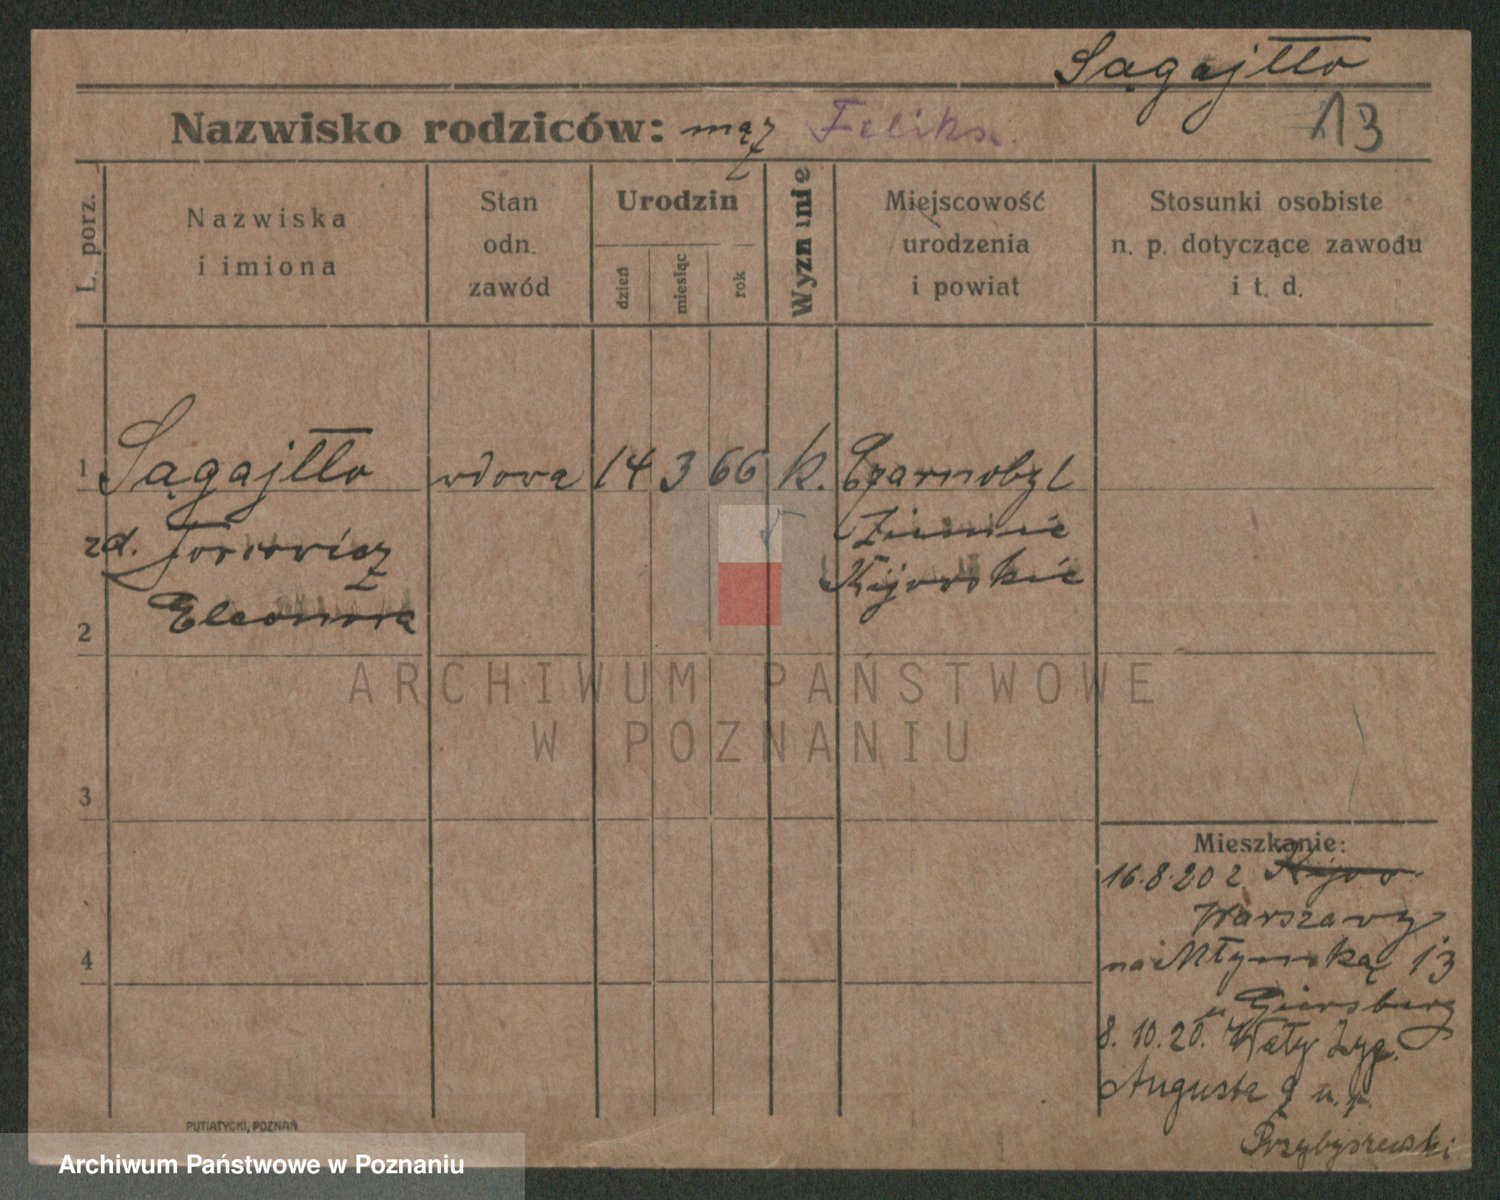 Sągajłło
Nazwisko rodziców: mąż Feliks.
13
L. porz.
Nazwiska
i imiona
Stan
odn.
zawód
Urodzin
dzień
miesiąc
rok
Wyznanie
Miejscowość
urodzenia
i powiat
Stosunki osobiste
n. p. dotyczące zawodu
i t. d.
1 Sągajłło wdowa 14 3 66 k. Czarnobyl
zd. Ziemie
Kijowskie
Eleonora
2
3
4
Mieszkanie:
16.8.20 z Kijow
Warszawy
na Młyńską 13
u Giersberg
8.10.20. Wały Zyg.
Augusta 9 u p.
Przybyszewski
PUTIATYCKI, POZNAŃ
ARCHIWUM PAŃSTWOWE
W POZNANIU
Archiwum Państwowe w Poznaniu